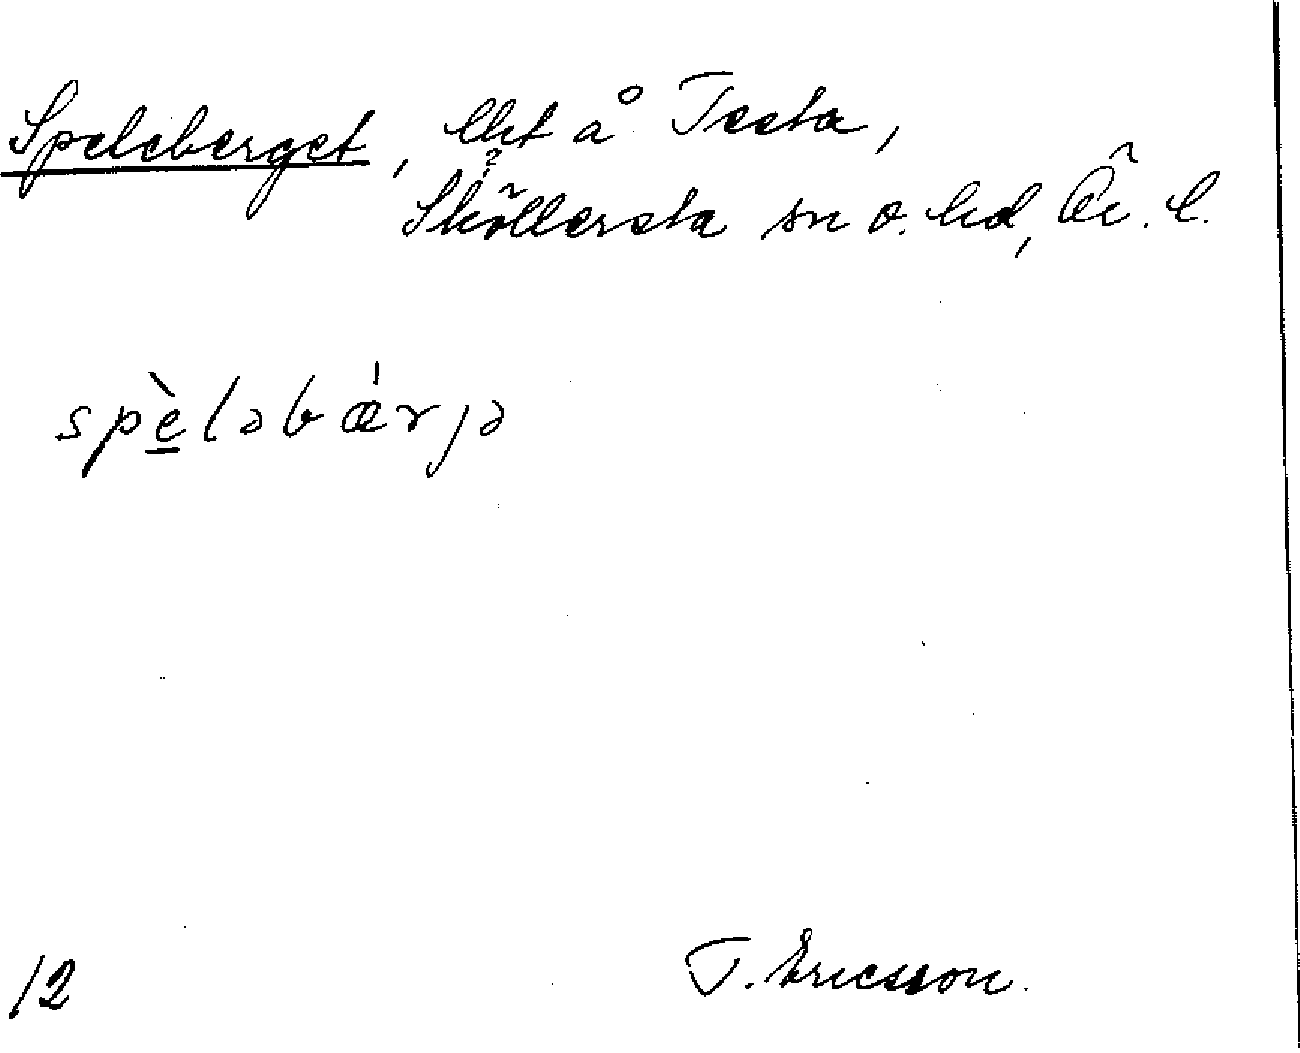 Speleberget, lht å Testa,
Sköllersta sn o. hd, Ör. l.
spèləbǽrjə
12
T. Ericsson.